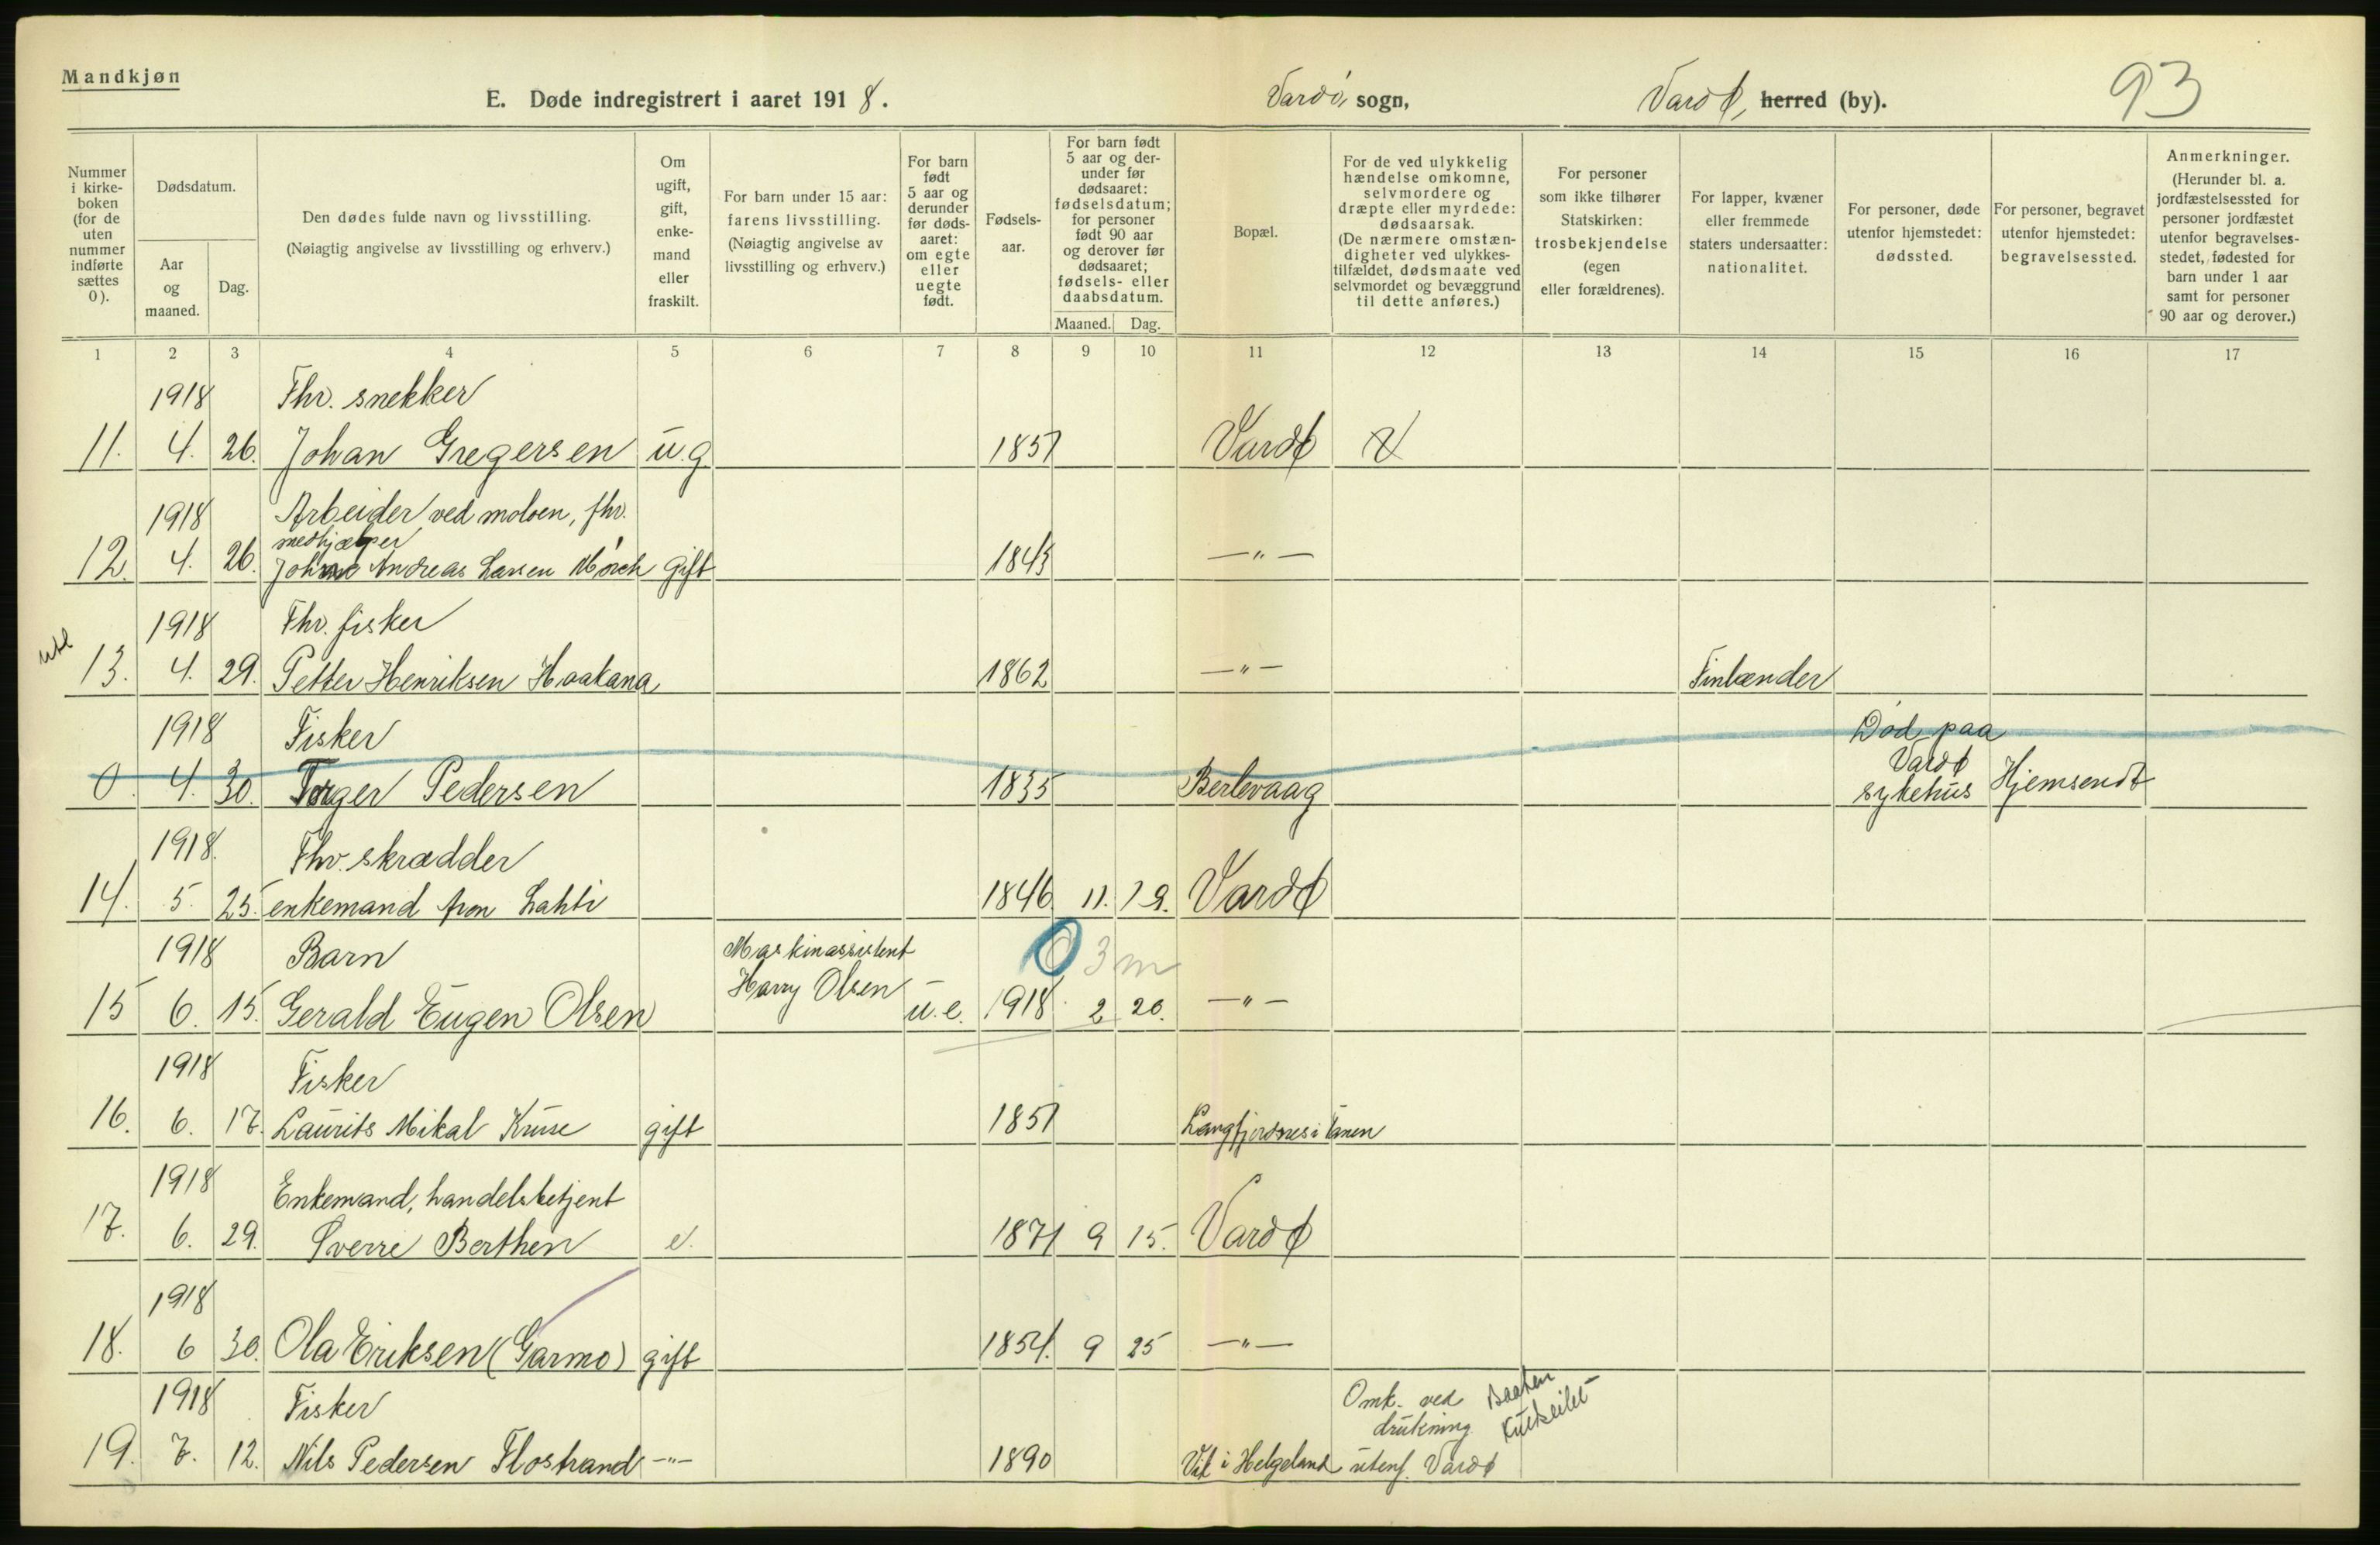 Mandkjøn
E. Døde indregistrert i aaret 1918.
Vardø sogn,
Vardø, herred (by).
93
Nummer i kirkeboken (for de uten nummer indførte sættes 0).
Dødsdatum.
Aar og maaned.
Dag.
Den dødes fulde navn og livsstilling.
(Nøiagtig angivelse av livsstilling og erhverv.)
Om ugift, gift, enkemand eller fraskilt.
For barn under 15 aar: farens livsstilling.
(Nøiagtig angivelse av livsstilling og erhverv.)
For barn født 5 aar og derunder før dødsaaret: om egte eller uegte født.
Fødselsaar.
For barn født 5 aar og derunder før dødsaaret: fødselsdatum; for personer født 90 aar og derover før dødsaaret; fødsels- eller daabsdatum.
Maaned. Dag.
Bopæl.
For de ved ulykkelig hændelse omkomne, selvmordere og dræpte eller myrdede: dødsaarsak.
(De nærmere omstændigheter ved ulykkestilfældet, dødsmaate ved selvmordet og bevæggrund til dette anføres.)
For personer som ikke tilhører Statskirken: trosbekjendelse (egen eller forældrenes).
For lapper, kvæner eller fremmede staters undersaatter: nationalitet.
For personer, døde utenfor hjemstedet: dødssted.
For personer, begravet utenfor hjemstedet: begravelsessted.
Anmerkninger.
(Herunder bl. a. jordfæstelsessted for personer jordfæstet utenfor begravelsesstedet, fødested for barn under 1 aar samt for personer 90 aar og derover.)
1 2 3 4 5 6 7 8 9 10 11 12 13 14 15 16 17
1918 Fhv. snekker
11. 4. 26. Johan Gregersen u.g. 1857 Vardø
1918 Arbeider ved moloen, fhv.
smedhjælper
12. 4. 26. Andreas Larsen Mørch gift 1843 —"—
1918 Fhv. fisker
utl 13. 4. 29. Petter Henriksen Haakana 1862 —"— Finlænder
1918 Fisker Død paa
Vardø
0. 4. 30. Torger Pedersen 1835 Berlevaag sykehus Hjemsendt
1918. Fhv. skrædder
14. 5. 25. enkemand Aron Lahti 1846 11. 19. Vardø
1918 Barn Maskinassistent 0 3 m
Harry Olsen
15 6. 15. Gerald Eugen Olsen u.e. 1918 2 20. —"—
1918 Fisker
16. 6. 17. Laurits Mikal Kruse gift 1851 Langfjordnes i Tanen
1918 Enkemand, handelsbetjent
17. 6. 29. Sverre Berthen e. 1871 9 15. Vardø
1918
18. 6 30. Ola Eriksen (Garmo) gift 1854. 9 25 —"—
1918 Fisker Omk. ved Baaten
drukning kulseilet
19. 7. 12. Nils Pedersen Flostrand —"— 1890 Vik i Helgeland utenf. Vardø